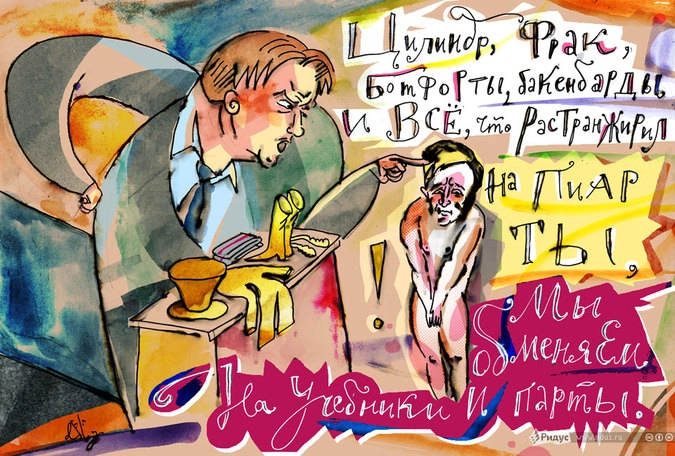 Цилиндр, Фрак,
БотФоРты, бакенбарды,
И ВСЁ, что РасТранжирил
На ПиАР
ТЫ,
!
Мы
обменяЕм
На Учебники И парты.
Ридус www.ridus.ru